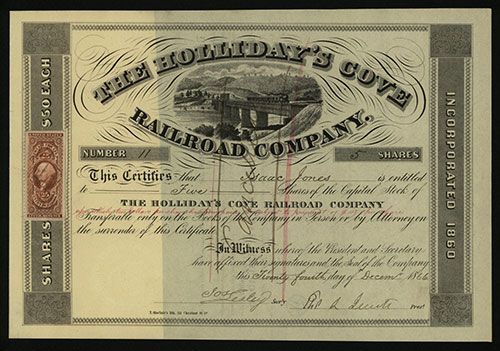 THE HOLLIDAY'S COVE
RAILROAD COMPANY.
NUMBER 11 5 SHARES
This Certifies that Isaac Jones is entitled
to Five Shares of the Capital Stock of
THE HOLLIDAY'S COVE RAILROAD COMPANY
Transferable on the Books of the Company in Person or by Attorney on
the surrender of this Certificate.
In Witness whereof the President and Secretary
have affixed their signatures and the Seal of the Company
this Twenty fourth day of Decem. 1866
Jos Lesley Secy. Pres't
SHARES $50 EACH
INCORPORATED 1860